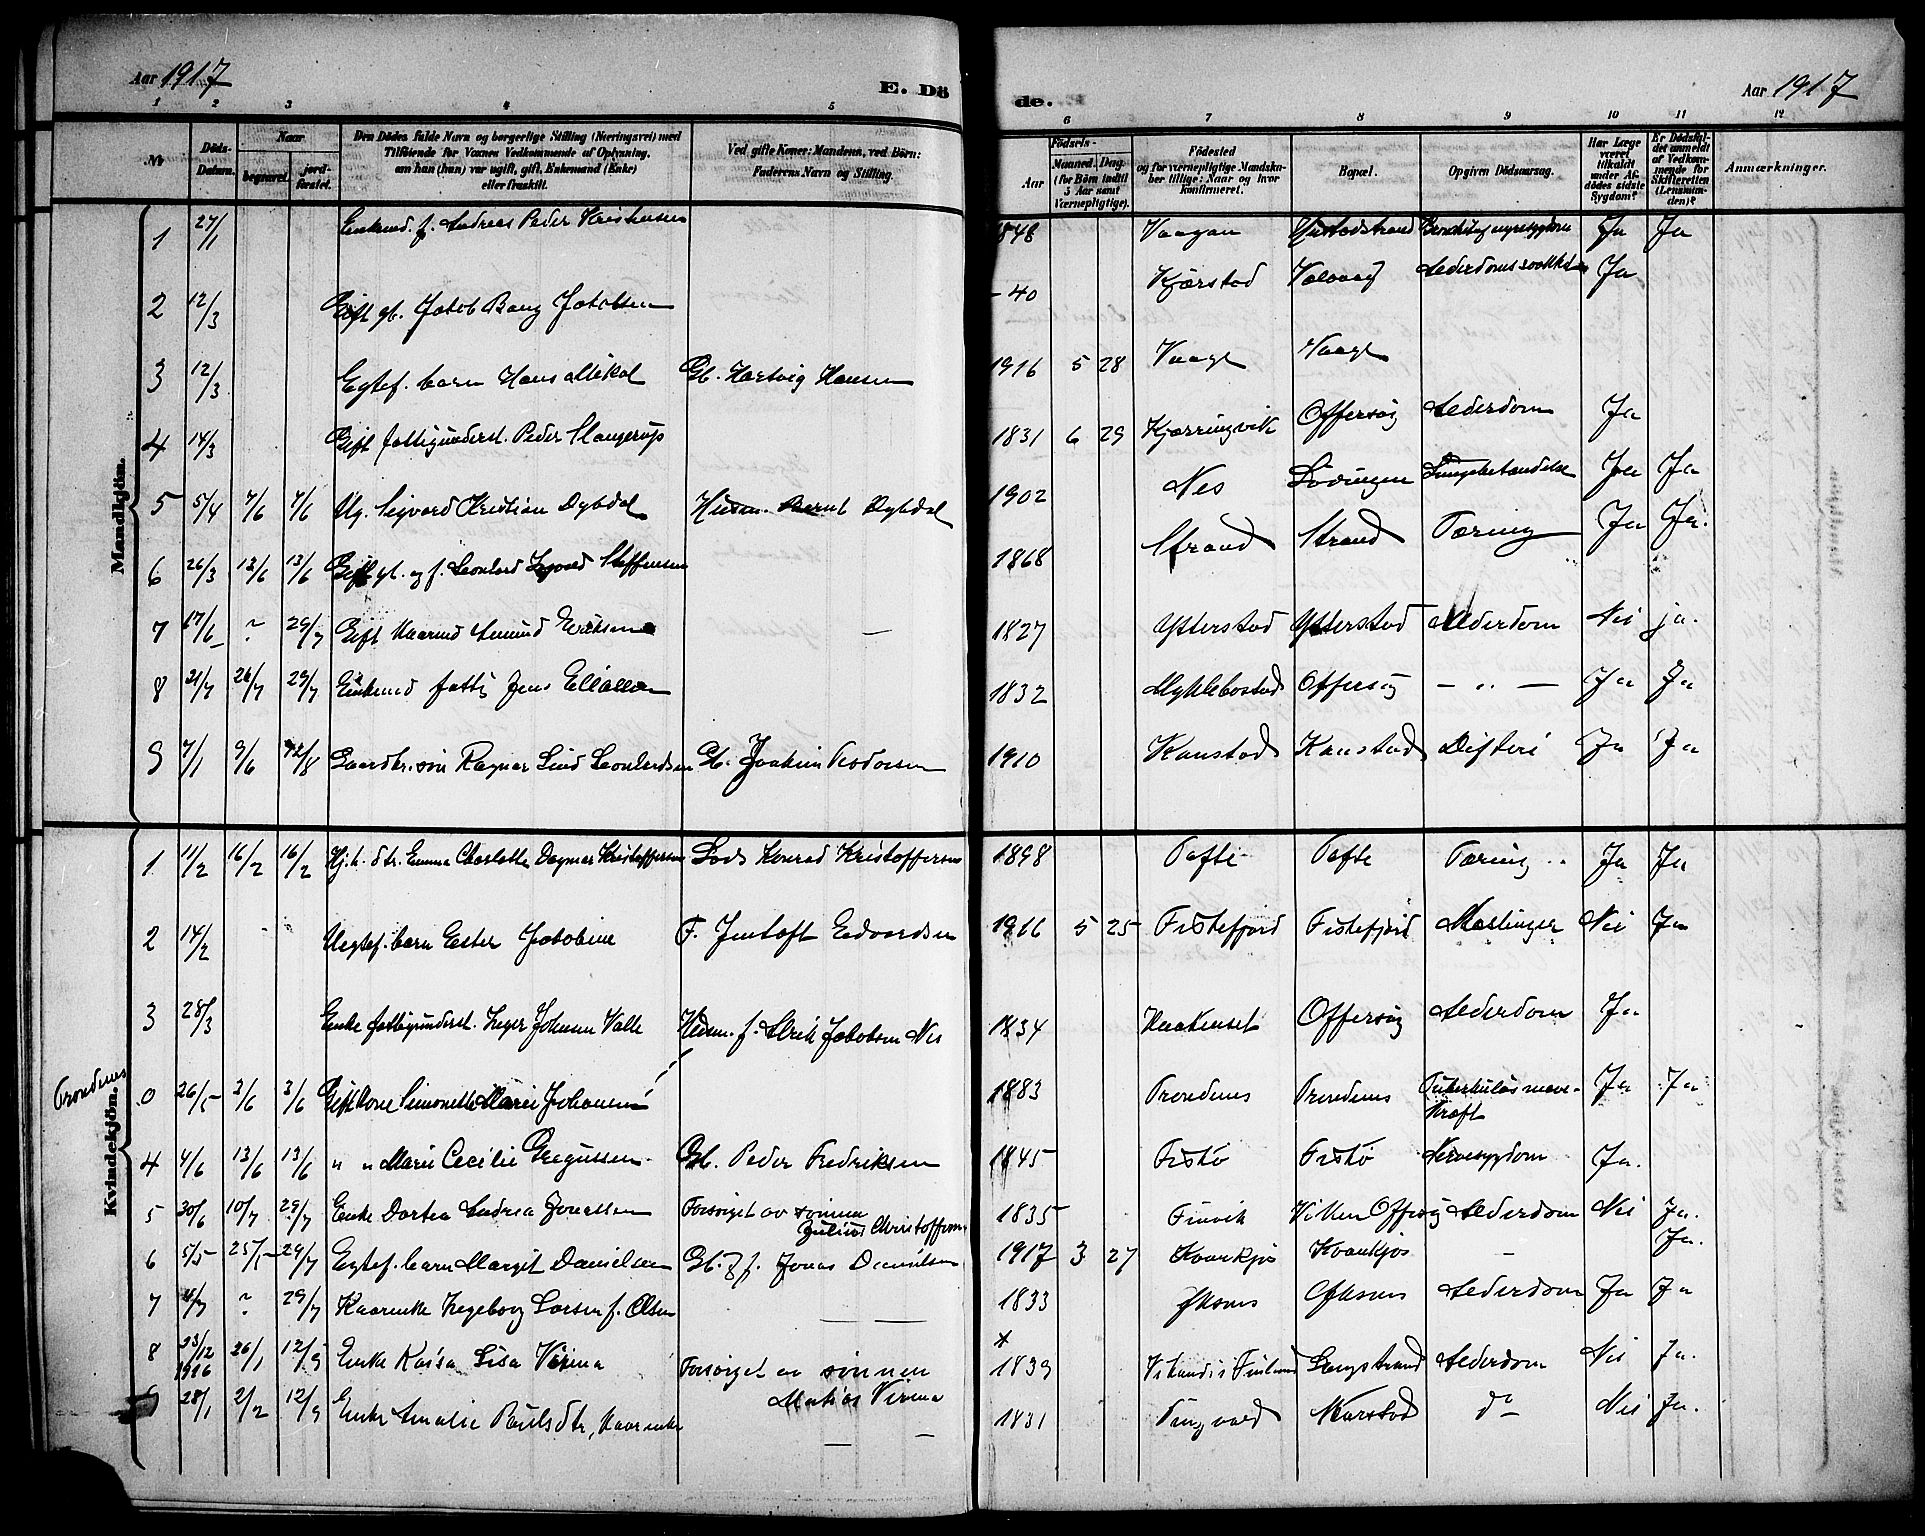 Aar 1917
E. Dö
de.
Aar 1917
1 2 3 4 5 6 7 8 9 10 11 12
Nr
Döds-Datum.
Naar
begravet.
jord-fæstet.
Den Dödes fulde Navn og borgerlige Stilling (Næringsvei) med
Tilföiende for Voxnes Vedkommende af Oplysning,
om han (hun) var ugift, gift, Enkemand (Enke)
eller fraskilt.
Ved gifte Koner: Mandens, ved Börn:
Faderens Navn og Stilling.
Födsels-
Aar
Maaned. Dag.
(for Börn indtil
5 Aar samt
Værnepligtige).
Födested
og for værnepligtige Mandskaber tillige: Naar og hvor
konfirmeret.
Bopæl.
Opgiven Dödsaarsag.
Har Læge været tilkaldt under Afdödes sidste Sygdom?
Er Dödsfaldet anmeldt af Vedkommende for Skifteretten (Lensmanden)?
Anmærkninger.
Mandkjön.
1 27/1 Enkemd. f. Andreas Peder Kristensen 1848 Vaagan Ja Ja
2 12/3 Gift gb. Jakob Bang Jakobsen - 40 Kjærstad Valvaag Ja
3 12/3 Egtef. barn Hans Mikal Gb. Hartvig Hansen 1916 5 28 Vaage Vaage
4 14/3 Gift fattigunderst. Peder Slangerup 1831 6 29 Kjærringvik Offersöy Alderdom Ja
5 5/4 7/6 7/6 Ug. Sigvard Kristian Dybdal Husm. Bernt Dybdal 1902 Nes Lödingen Lungebetændelse Ja Ja
6 26/3 13/6 13/6 Gift gb. og f. Leonhard Steffensen 1868 Strand Strand Tæring Ja Ja.
7 17/6 ? 29/7 Gift Kaarmd Amund Eriksen — 1827 Ytterstad Ytterstad Alderdom Nei ja.
8 21/7 26/7 29/7 Enkemd fattig Jens Eliassen 1832 Myklebostad Offersöy — " — Ja Ja
9 7/1 9/6 12/8 Gaardbr. sön Ragnar Lind Leonhardsen Gb. Joakim Teodorsen 1910 Kanstad Kanstad Difteri Ja Ja
Kvindekjön.
1 11/2 16/2 16/2 Hj.h. dtr. Emma Charlotte Dagmar Kristoffersen Lods Konrad Kristoffersen 1898 Tofte Tofte Tæring Ja Ja
2 14/2 Uegtef. barn Ester Jakobine F. Jentoft Edvardsen 1916 5 25 Fiskefjord Fiskefjord Meslinger Nei Ja
3 28/3 Enke fattigunderst. Inger Johanna Valle Husm. f. Ulrik Jakobsen Nes 1834 Haakenset Offersöy Alderdom Ja
Trondenes
0 26/5 3/6 3/6 Gift Kone Simonette Marie Johansen 1883 Trondenes Trondenes Tuberkulös mave-
kræft Ja Ja
4 4/6 13/6 13/6 " " Marie Cecilie Gregussen Gb. Peder Fredriksen 1845 Fiskö Fiskö Nervesygdom Ja.
5 30/6 10/7 29/7 Enke Dortea Andrea Jonassen Forsörget av sönnen
Julius Christoffersen 1835 Finvik Vikken Offersöy Alderdom Nei Ja.
6 5/5 25/5 29/7 Egtef. barn Margit Danielsen Gb. & f. Jonas Danielsen 1917 3 27 Kvankjos Kvankjos — Ja.
7 4/7 ? 29/7 Kaarenke Ingeborg Larsen f. Olsen — — 1833 Alderdom Ja Ja
8 23/12 1916 26/1 12/9 Enke Kaisa Lisa Virma Forsörget av sönnen
Matias Virma × 1839 Vitandi i Finland Langstrand Alderdom Nei Ja.
9 28/1 2/2 12/9 Enke Amalie Paulsdtr, Kaarenke — — 1831 Tingvold Karstad do Nei Ja.